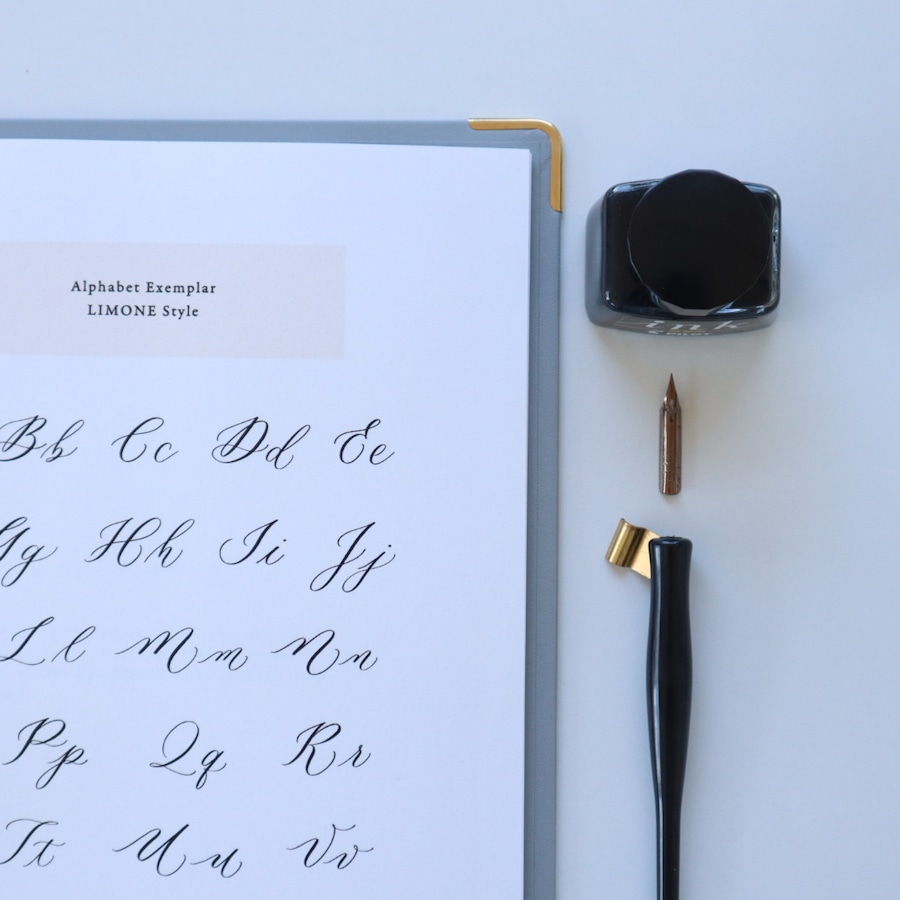 Alphabet Exemplar
LIMONE Style
Bb Cc Dd Ee
Gg Hh Ii Jj
Ll Mm Nn
Pp Qq Rr
Tt Uu Vv
ink